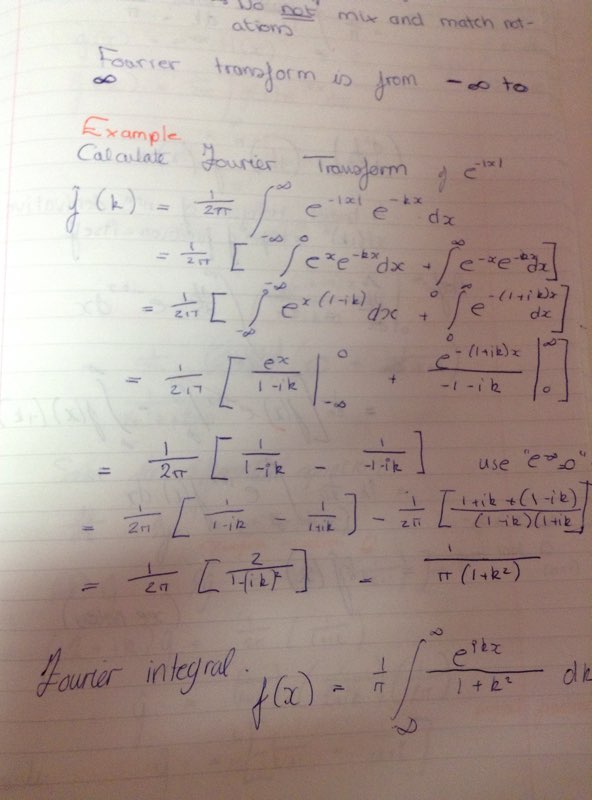 Do not mix and match not-
ations
Fourier transform is from -∞ to
∞
Example
Calculate Fourier Transform of e^{-|x|}
f̂(k) = 1/2π ∫_{-∞}^{∞} e^{-|x|} e^{-kx} dx
= 1/2π [ ∫_{-∞}^{0} e^x e^{-kx} dx + ∫_{0}^{∞} e^{-x} e^{-kx} dx ]
= 1/2π [ ∫_{-∞}^{0} e^{x(1-ik)} dx + ∫_{0}^{∞} e^{-(1+ik)x} dx ]
= 1/2π [ e^x/(1-ik) |_{-∞}^{0} + e^{-(1+ik)x}/(-1-ik) |_{0}^{∞} ]
= 1/2π [ 1/(1-ik) - 1/(-1-ik) ] use "e^{-∞}=0"
= 1/2π [ 1/(1-ik) - 1/(1+ik) ] - 1/2π [ (1+ik+(1-ik))/((1-ik)(1+ik) ]
= 1/2π [ 2/(1-(ik)^2) ] = 1/(π(1+k²))
Fourier integral. f(x) = 1/π ∫_{-∞}^{∞} e^{ikx}/(1+k²) dk